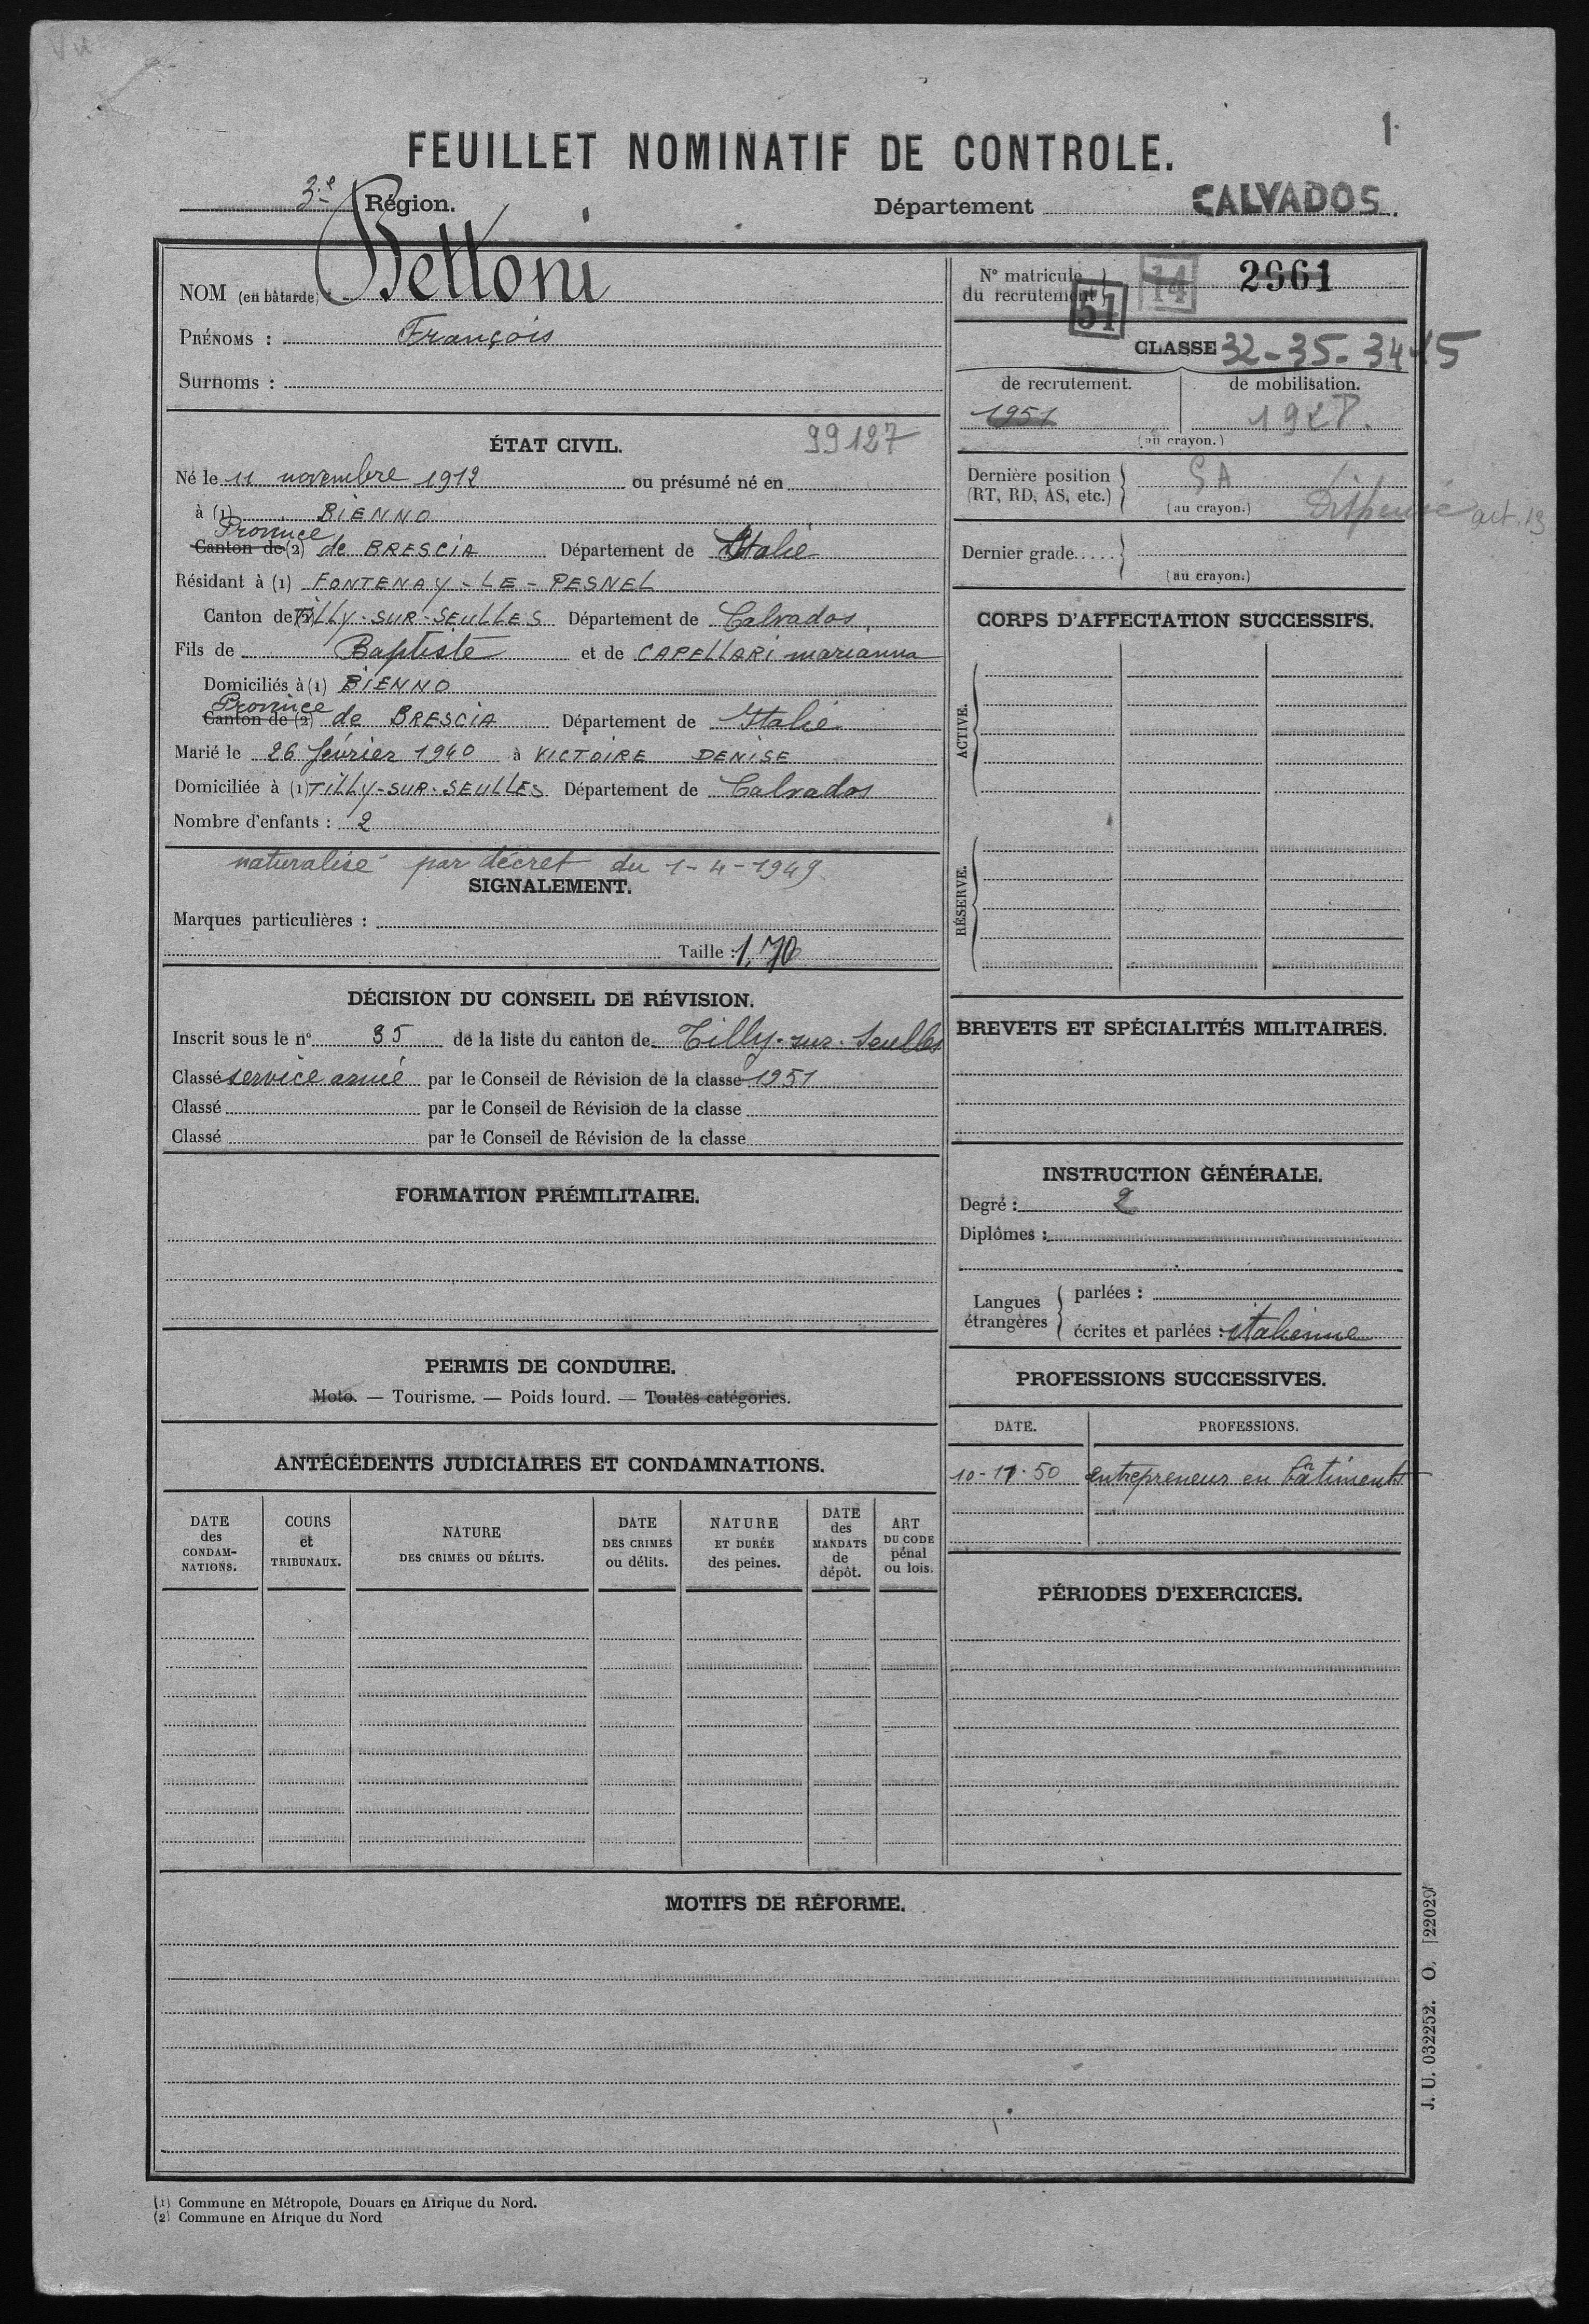 Vu
1.
FEUILLET NOMINATIF DE CONTROLE.
3e Région.
Département CALVADOS.
NOM (en bâtarde) : Bettoni
PRÉNOMS : François
Surnoms :
ÉTAT CIVIL. 99127
Né le 11 novembre 1912 ou présumé né en
à (1) BIENNO
Province
Canton de (2) de BRESCIA Département de Italie
Résidant à (1) FONTENAY-LE-PESNEL
Canton de (2) TILLY-SUR-SEULLES Département de Calvados.
Fils de Baptiste et de CAPELLARI marianna
Domiciliés à (1) BIENNO
Province
Canton de (2) de BRESCIA Département de Italie
Marié le 26 février 1940 à VICTOIRE DENISE
Domiciliée à (1) TILLY-SUR-SEULLES Département de Calvados
Nombre d'enfants : 2
naturalisé par décret du 1-4-1949.
SIGNALEMENT.
Marques particulières :
Taille : 1,70
DÉCISION DU CONSEIL DE RÉVISION.
Inscrit sous le n° 35 de la liste du canton de Tilly-sur-Seulles
Classé service armé par le Conseil de Révision de la classe 1951
Classé par le Conseil de Révision de la classe
Classé par le Conseil de Révision de la classe
FORMATION PRÉMILITAIRE.
PERMIS DE CONDUIRE.
Moto. — Tourisme. — Poids lourd. — Toutes catégories.
ANTÉCÉDENTS JUDICIAIRES ET CONDAMNATIONS.
DATE des CONDAMNATIONS.
COURS et TRIBUNAUX.
NATURE DES CRIMES OU DÉLITS.
DATE DES CRIMES ou délits.
NATURE ET DURÉE des peines.
DATE des MANDATS de dépôt.
ART DU CODE pénal ou lois.
N° matricule du recrutement 14 2961
51
CLASSE 32-35-34-15
de recrutement. de mobilisation.
1951 
(au crayon.)
Dernière position (RT, RD, AS, etc.) SA
(au crayon.) Dispensé art. 13
Dernier grade.....
(au crayon.)
CORPS D'AFFECTATION SUCCESSIFS.
ACTIVE.
RÉSERVE.
BREVETS ET SPÉCIALITÉS MILITAIRES.
INSTRUCTION GÉNÉRALE.
Degré : 2
Diplômes :
Langues étrangères
parlées :
écrites et parlées : italienne
PROFESSIONS SUCCESSIVES.
DATE. PROFESSIONS.
10-11-50 entrepreneur en bâtiments
PÉRIODES D'EXERCICES.
MOTIFS DE RÉFORME.
J. U. 032252. O. [22029]
(1) Commune en Métropole, Douars en Afrique du Nord.
(2) Commune en Afrique du Nord